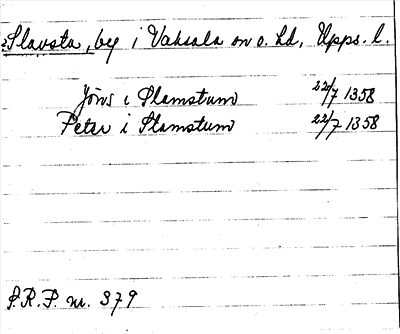 Slavsta, by i Vaksala sn o. hd, Upps. l.
Jöns i Slamstum 22/7 1358
Peter i Slamstum 22/7 1358
S.R.P. nr. 379